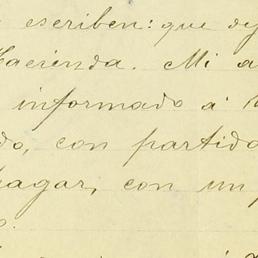 escriben: que de
Hacienda. Mi a
informado á
do, con partida
pagar, con un